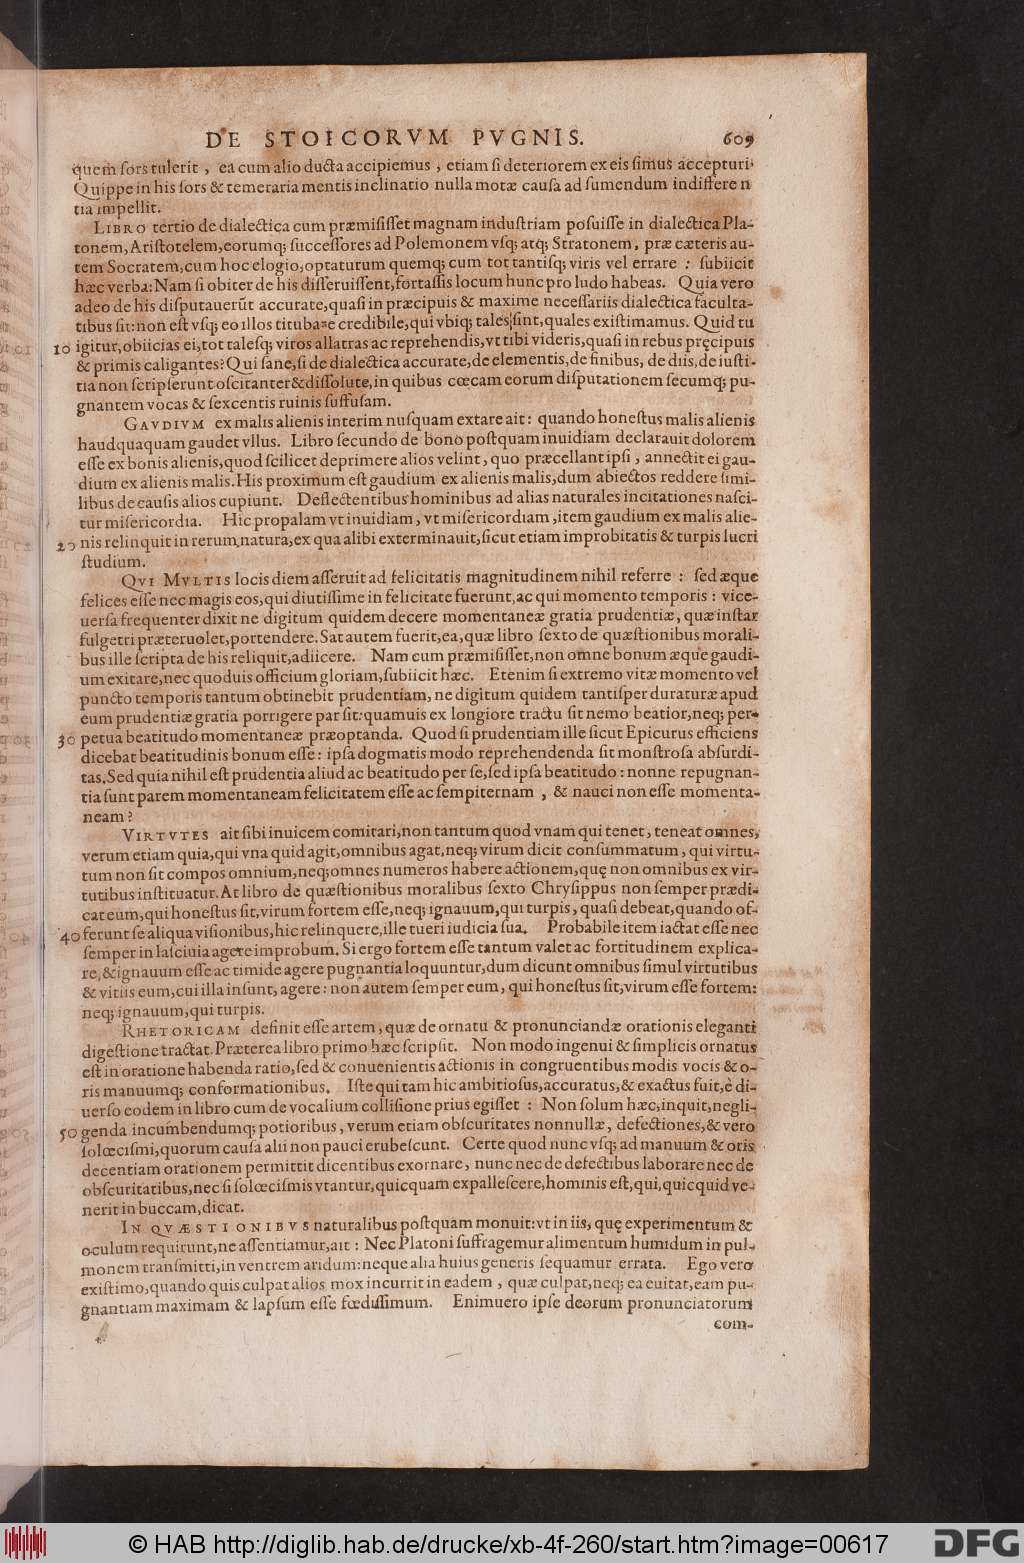 DE STOICORVM PVGNIS. 609
quem sors tulerit, ea cum alio ducta accipiemus, etiam si deteriorem ex eis simus accepturi.
Quippe in his sors & temeraria mentis inclinatio nulla motæ causa ad sumendum indifferen
tia impellit.
LIBRO tertio de dialectica cum præmisisset magnam industriam posuisse in dialectica Pla-
tonem, Aristotelem, eorumq; successores ad Polemonem vsq; atq; Stratonem, præ cæteris au-
tem Socratem, cum hoc elogio, optaturum quemq; cum tot tantisq; viris vel errare : subiicit
hæc verba: Nam si obiter de his disseruissent, fortassis locum hunc pro ludo habeas. Quia vero
adeo de his disputauerūt accurate, quasi in præcipuis & maxime necessariis dialectica faculta-
tibus sit: non est vsq; eo illos titubare credibile, qui vbiq; tales sint, quales existimamus. Quid tu
10 igitur, obiicias ei, tot talesq; viros allatras ac reprehendis, vt tibi videris, quasi in rebus pręcipuis
& primis caligantes? Qui sane, si de dialectica accurate, de elementis, de finibus, de diis, de iusti-
tia non scripserunt oscitanter & dissolute, in quibus cœcam eorum disputationem secumq; pu-
gnantem vocas & sexcentis ruinis suffusam.
GAVDIVM ex malis alienis interim nusquam extare ait : quando honestus malis alienis
haudquaquam gaudet vllus. Libro secundo de bono postquam inuidiam declarauit dolorem
esse ex bonis alienis, quod scilicet deprimere alios velint, quo præcellant ipsi, annectit ei gau-
dium ex alienis malis. His proximum est gaudium ex alienis malis, dum abiectos reddere simi-
libus de causis alios cupiunt. Deflectentibus hominibus ad alias naturales incitationes nasci-
tur misericordia. Hic propalam vt inuidiam, vt misericordiam, item gaudium ex malis alie-
20 nis relinquit in rerum natura, ex qua alibi exterminauit, sicut etiam improbitatis & turpis lucri
studium.
QVI MVLTIS locis diem asseruit ad felicitatis magnitudinem nihil referre : sed æque
felices esse nec magis eos, qui diutissime in felicitate fuerunt, ac qui momento temporis : vice-
uersa frequenter dixit ne digitum quidem decere momentaneæ gratia prudentiæ, quæ instar
fulgetri præteruolet, portendere. Sat autem fuerit, ea, quæ libro sexto de quæstionibus morali-
bus ille scripta de his reliquit, adiicere. Nam cum præmisisset, non omne bonum æque gaudi-
um exitare, nec quoduis officium gloriam, subiicit hæc. Etenim si extremo vitæ momento vel
puncto temporis tantum obtinebit prudentiam, ne digitum quidem tantisper duraturæ apud
eum prudentiæ gratia porrigere par sit: quamuis ex longiore tractu sit nemo beatior, neq; per-
30 petua beatitudo momentaneæ præoptanda. Quod si prudentiam ille sicut Epicurus efficiens
dicebat beatitudinis bonum esse : ipsa dogmatis modo reprehendenda sit monstrosa absurdi-
tas. Sed quia nihil est prudentia aliud ac beatitudo per se, sed ipsa beatitudo : nonne repugnan-
tia sunt parem momentaneam felicitatem esse ac sempiternam, & nauci non esse momenta-
neam?
VIRTVTES ait sibi inuicem comitari, non tantum quod vnam qui tenet, teneat omnes,
verum etiam quia, qui vna quid agit, omnibus agat, neq; virum dicit consummatum, qui virtu-
tum non sit compos omnium, neq; omnes numeros habere actionem, quę non omnibus ex vir-
tutibus instituatur. At libro de quæstionibus moralibus sexto Chrysippus non semper prædi-
cat eum, qui honestus sit, virum fortem esse, neq; ignauum, qui turpis, quasi debeat, quando of-
40 ferunt se aliqua visionibus, hic relinquere, ille tueri iudicia sua. Probabile item iactat esse nec
semper in lasciuia agere improbum. Si ergo fortem esse tantum valet ac fortitudinem explica-
re, & ignauum esse ac timide agere pugnantia loquuntur, dum dicunt omnibus simul virtutibus
& vitiis eum, cui illa insunt, agere : non autem semper eum, qui honestus sit, virum esse fortem:
neq; ignauum, qui turpis.
RHETORICAM definit esse artem, quæ de ornatu & pronunciandæ orationis eleganti
digestione tractat. Præterea libro primo hæc scripsit. Non modo ingenui & simplicis ornatus
est in oratione habenda ratio, sed & conuenientis actionis in congruentibus modis vocis & o-
ris manuumq; conformationibus. Iste qui tam hic ambitiosus, accuratus, & exactus fuit, è di-
uerso eodem in libro cum de vocalium collisione prius egisset : Non solum hæc, inquit, negli-
50 genda incumbendumq; potioribus, verum etiam obscuritates nonnullæ, defectiones, & vero
solœcismi, quorum causa alii non pauci erubescunt. Certe quod nunc vsq; ad manuum & oris
decentiam orationem permittit dicentibus exornare, nunc nec de defectibus laborare nec de
obscuritatibus, nec si solœcismis vtantur, quicquam expallescere, hominis est, qui, quicquid ve-
nerit in buccam, dicat.
IN QVÆSTIONIBVS naturalibus postquam monuit: vt in iis, quę experimentum &
oculum requirunt, ne assentiamur, ait : Nec Platoni suffragemur alimentum humidum in pul-
monem transmitti, in ventrem aridum: neque alia huius generis sequamur errata. Ego vero
existimo, quando quis culpat alios mox incurrit in eadem, quæ culpat, neq; ea euitat, eam pu-
gnantiam maximam & lapsum esse fœdissimum. Enimuero ipse deorum pronunciatorum
com-
© HAB http://diglib.hab.de/drucke/xb-4f-260/start.htm?image=00617
DFG